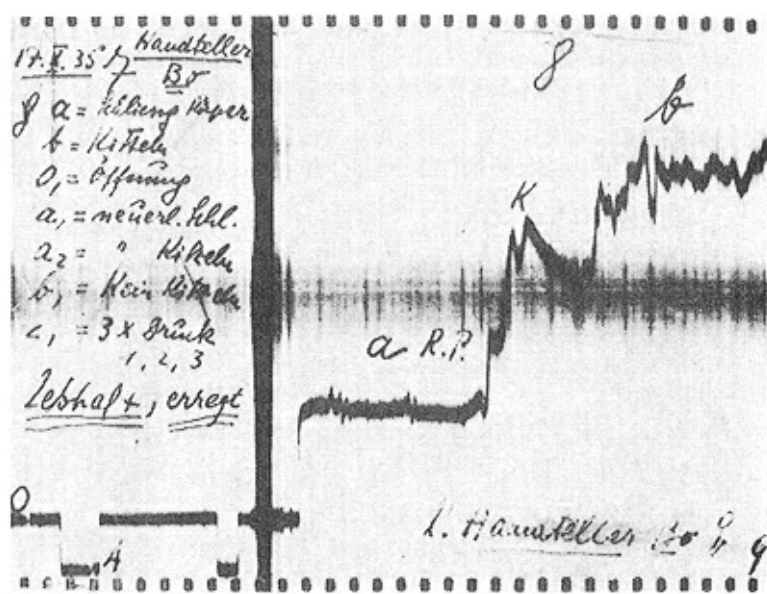 17. X. 35 Handteller
Bo
8 a = Körper
b = Kitzeln
O₁ = Öffnung
a₁ = neuerl. Schl.
a₂ = " Kitzeln
b₁ = Kein Kitzeln
c₁ = 3 x Druck
1, 2, 3
Lebhaft, erregt
O
A
8
b
K
a R.P.
L. Handteller Bo